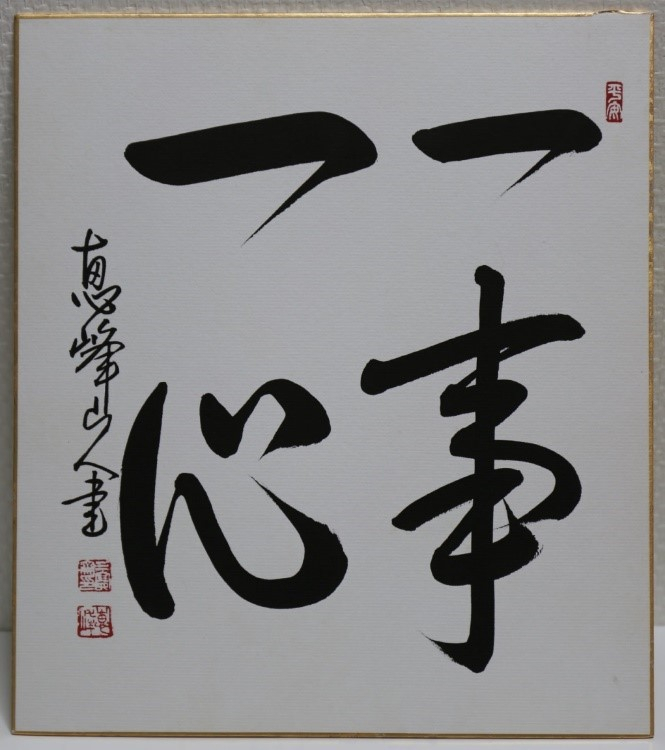 一事
一心
恵峰山人書